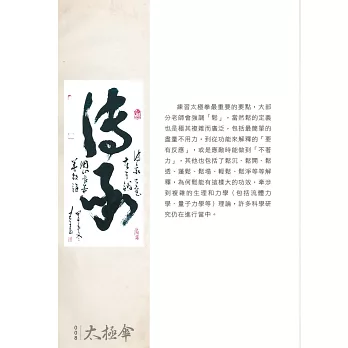 傳承
練習太極拳最重要的要點，大部
分老師會強調「鬆」。當然鬆的定義
也是極其複雜而廣泛，包括最簡單的
盡量不用力，到從功能來解釋的「要
有反應」，或是應敵時能做到「不著
力」。其他也包括了鬆沉、鬆開、鬆
透、蓬鬆、鬆塌、輕鬆、鬆淨等等解
釋，為何鬆能有這樣大的功效，牽涉
到複雜的生理和力學（包括流體力
學、量子力學等）理論，許多科學研
究仍在進行當中。
008
太極傘